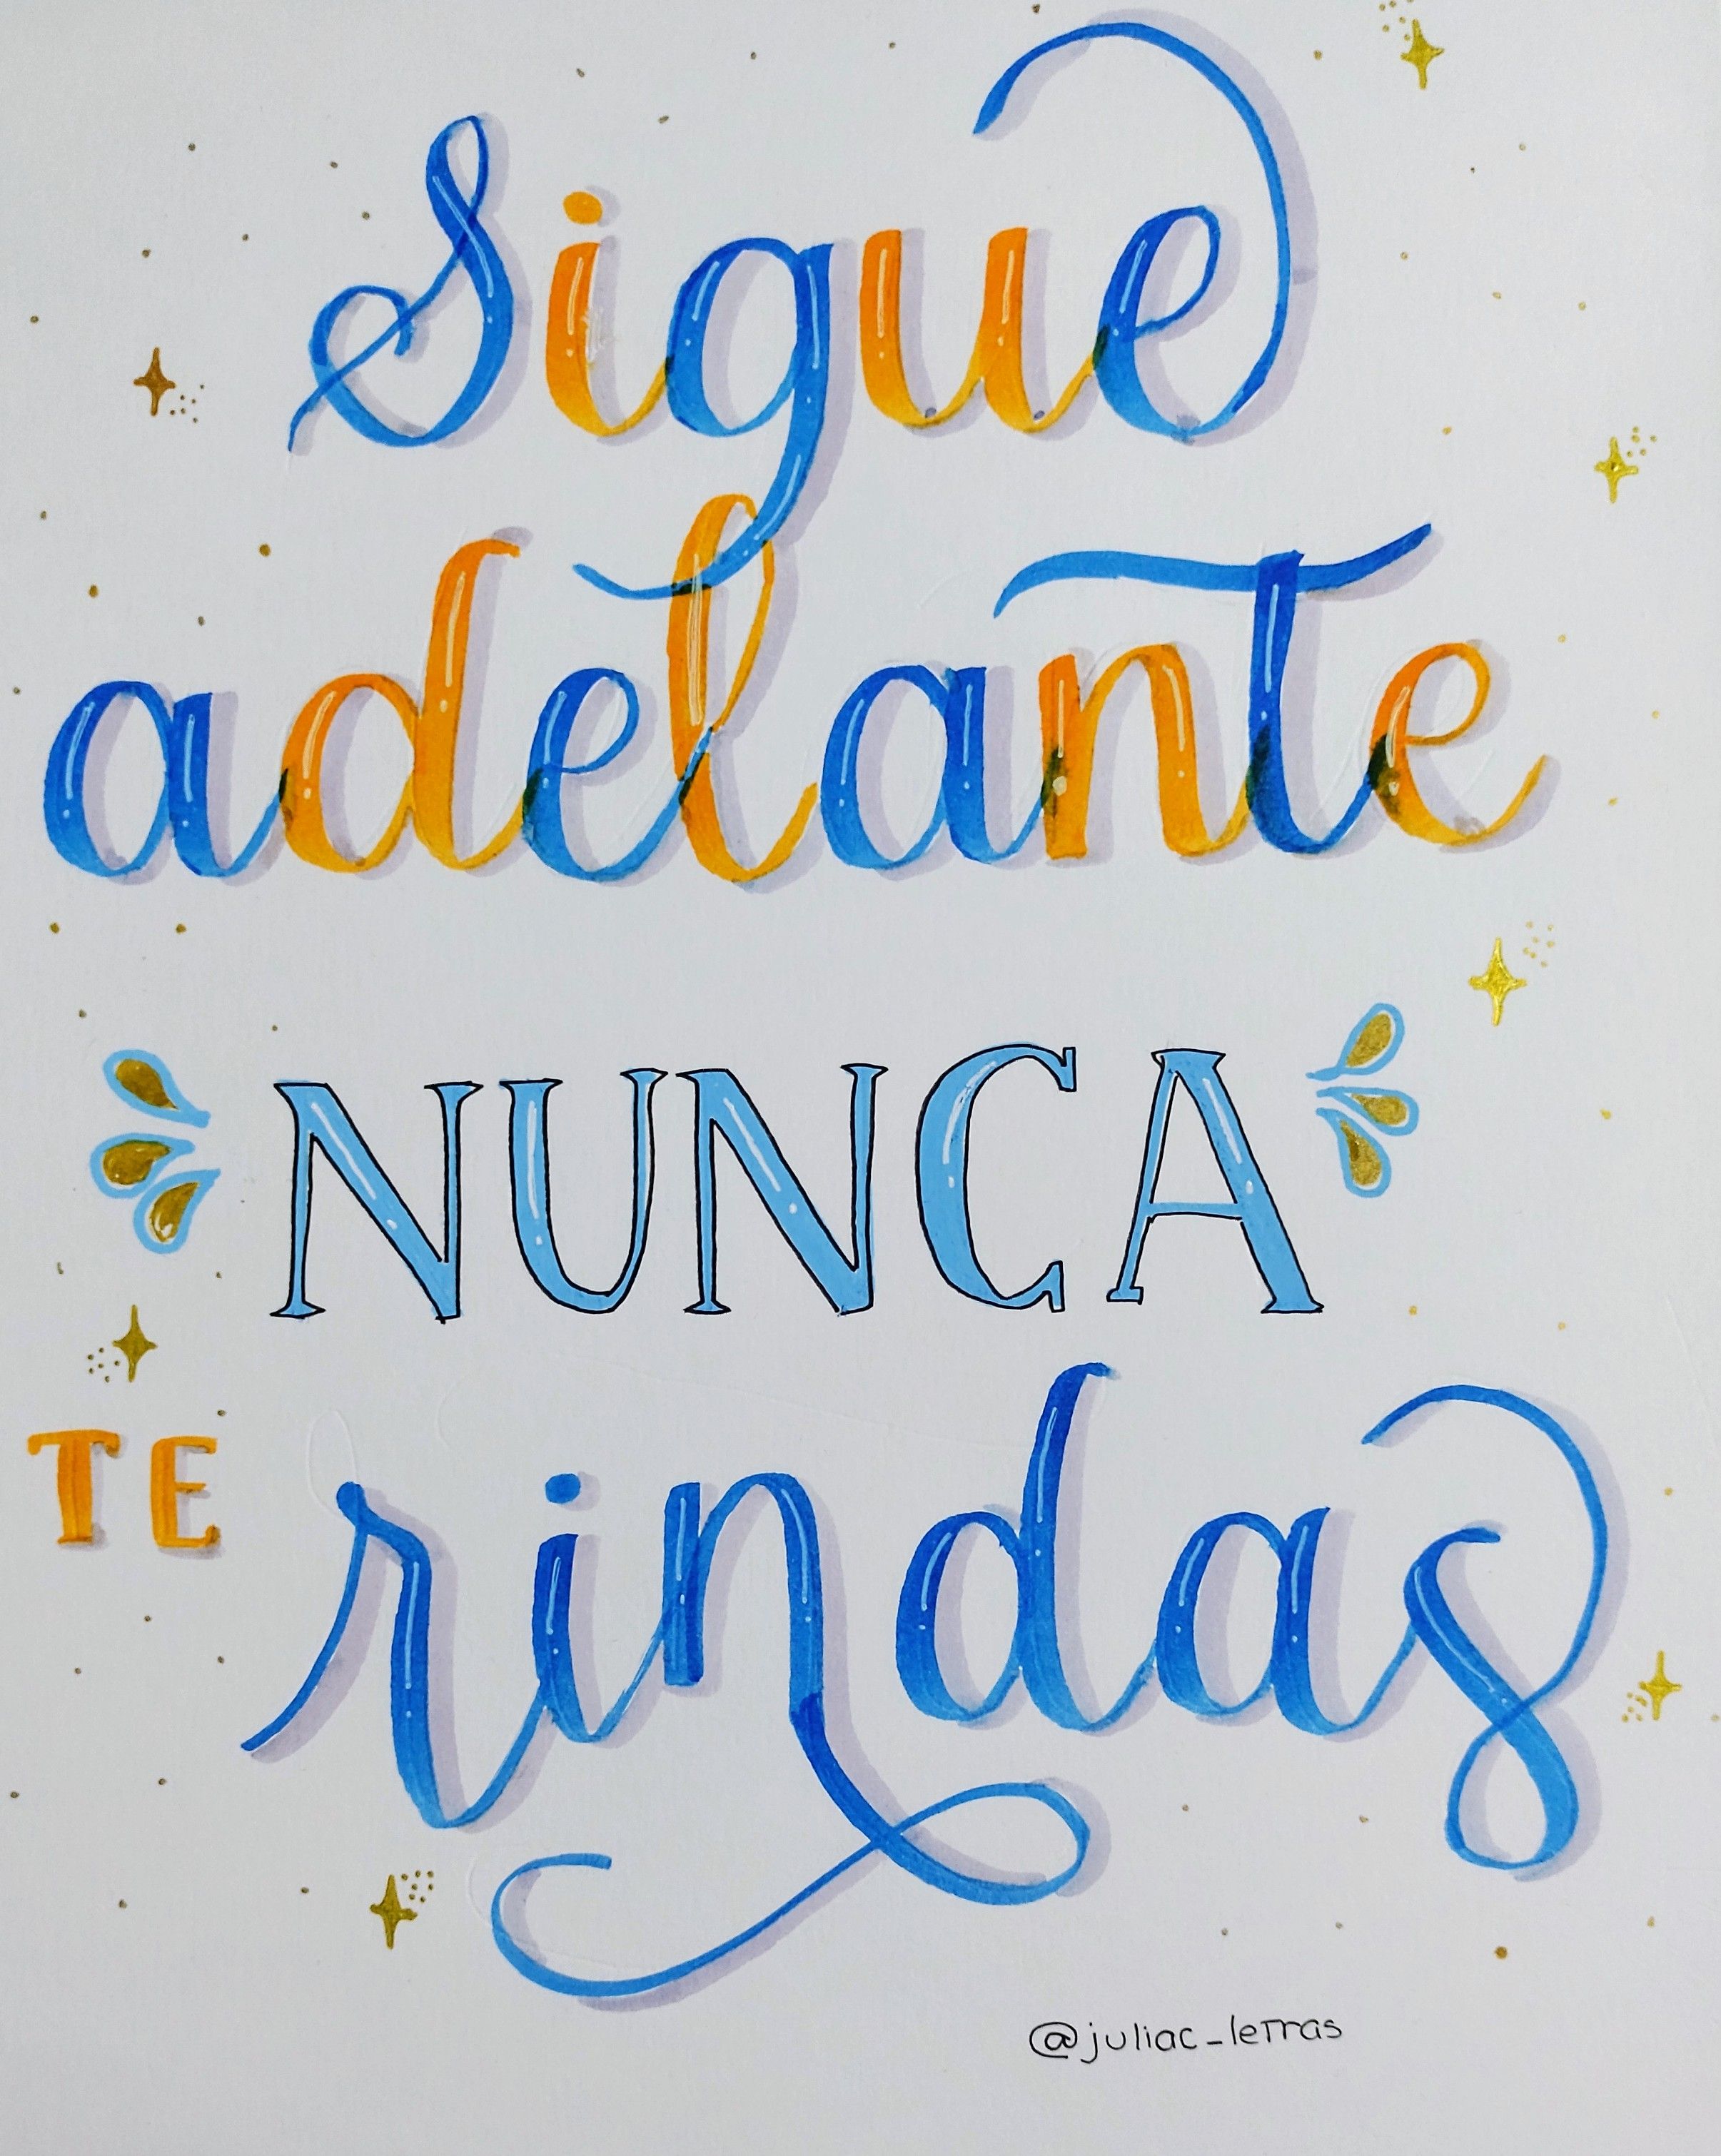 Sigue
adelante
NUNCA
TE rindas
@juliac_letras